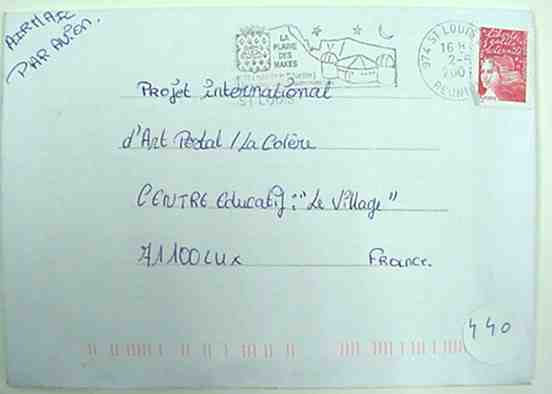 AIRMAIL
PAR AVION.
LA
PLAINE
DES
MAKES
ST LOUIS
974 ST LOUIS
16 H
2-
200
REUNION
Liberté
Projet international
d'Art Postal / La Colère
CENTRE Educatif: "Le Village"
71100 LUX FRANCE.
440